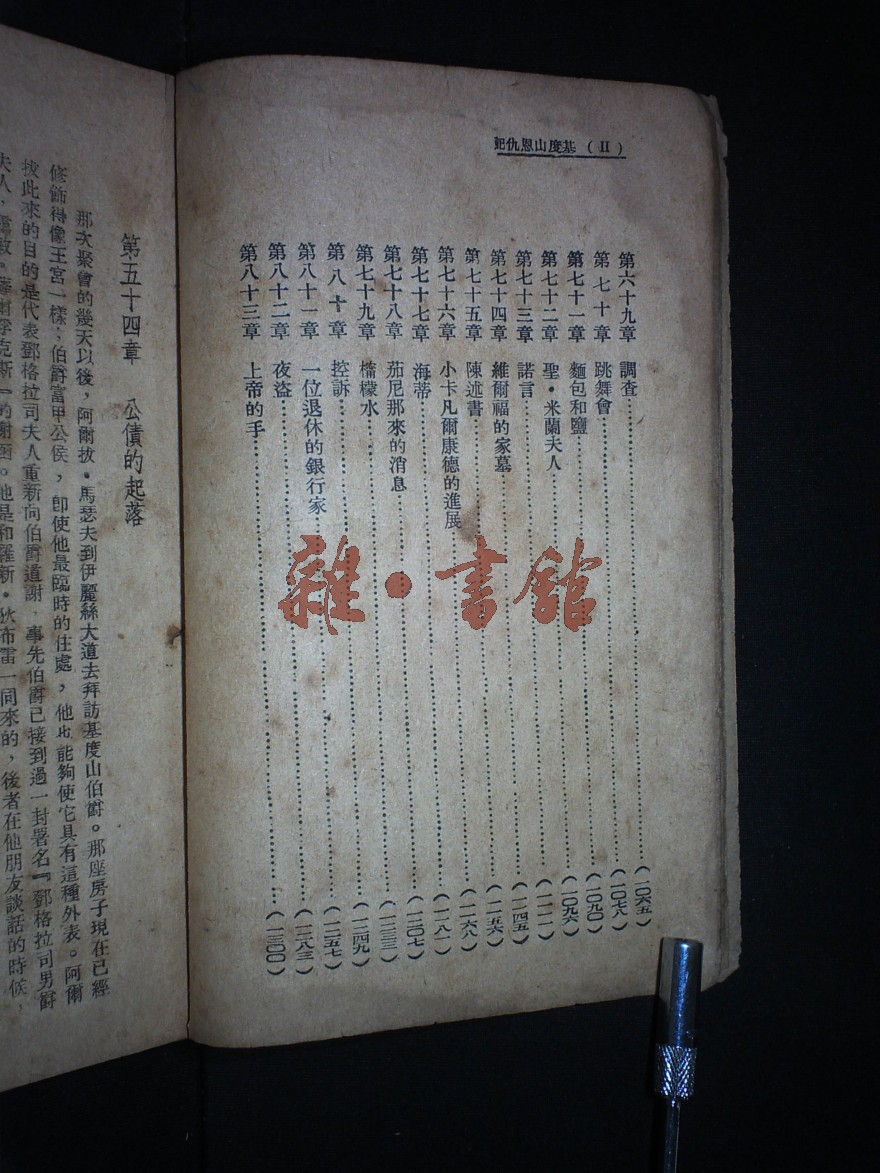 （II）基度山恩仇記
第六十九章 調查……（一〇六五）
第七十章 跳舞會……（一〇七八）
第七十一章 麵包和鹽……（一〇九〇）
第七十二章 聖・米蘭夫人……（一〇九六）
第七十三章 諾言……（一一一一）
第七十四章 維爾福的家墓……（一一四五）
第七十五章 陳述書……（一一五六）
第七十六章 小卡凡爾康德的進展……（一一六八）
第七十七章 海蒂……（一一八一）
第七十八章 茄尼那來的消息……（一二〇七）
第七十九章 檸檬水……（一二三三）
第八十章 控訴……（一二四九）
第八十一章 一位退休的銀行家……（一二五七）
第八十二章 夜盜……（一二八三）
第八十三章 上帝的手……（一三〇〇）
第五十四章 公債的起落
那次聚會的幾天以後，阿爾拔・馬瑟夫到伊麗絲大道去拜訪基度山伯爵。那座房子現在已經
修飾得像王宮一樣；伯爵富甲公侯，卽使他最臨時的住處，他也能夠使它具有這種外表。阿爾
拔此來的目的是代表鄧格拉司夫人重新向伯爵道謝，事先伯爵已接到過一封署名『鄧格拉司男爵
的謝函。他是和羅新・狄布雷一同來的，後者在他朋友談話的時候，
雜・書館